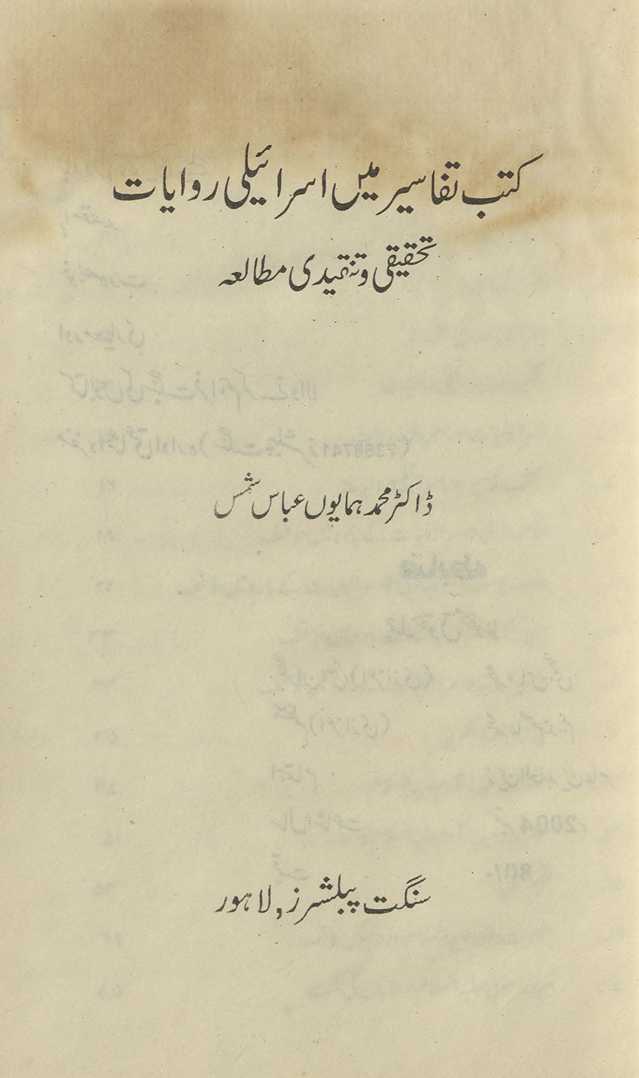 کتب تفاسیر میں اسرائیلی روایات
تحقیقی و تنقیدی مطالعہ
ڈاکٹر محمد ہمایوں عباس شمس
سنگت پبلشرز, لاہور